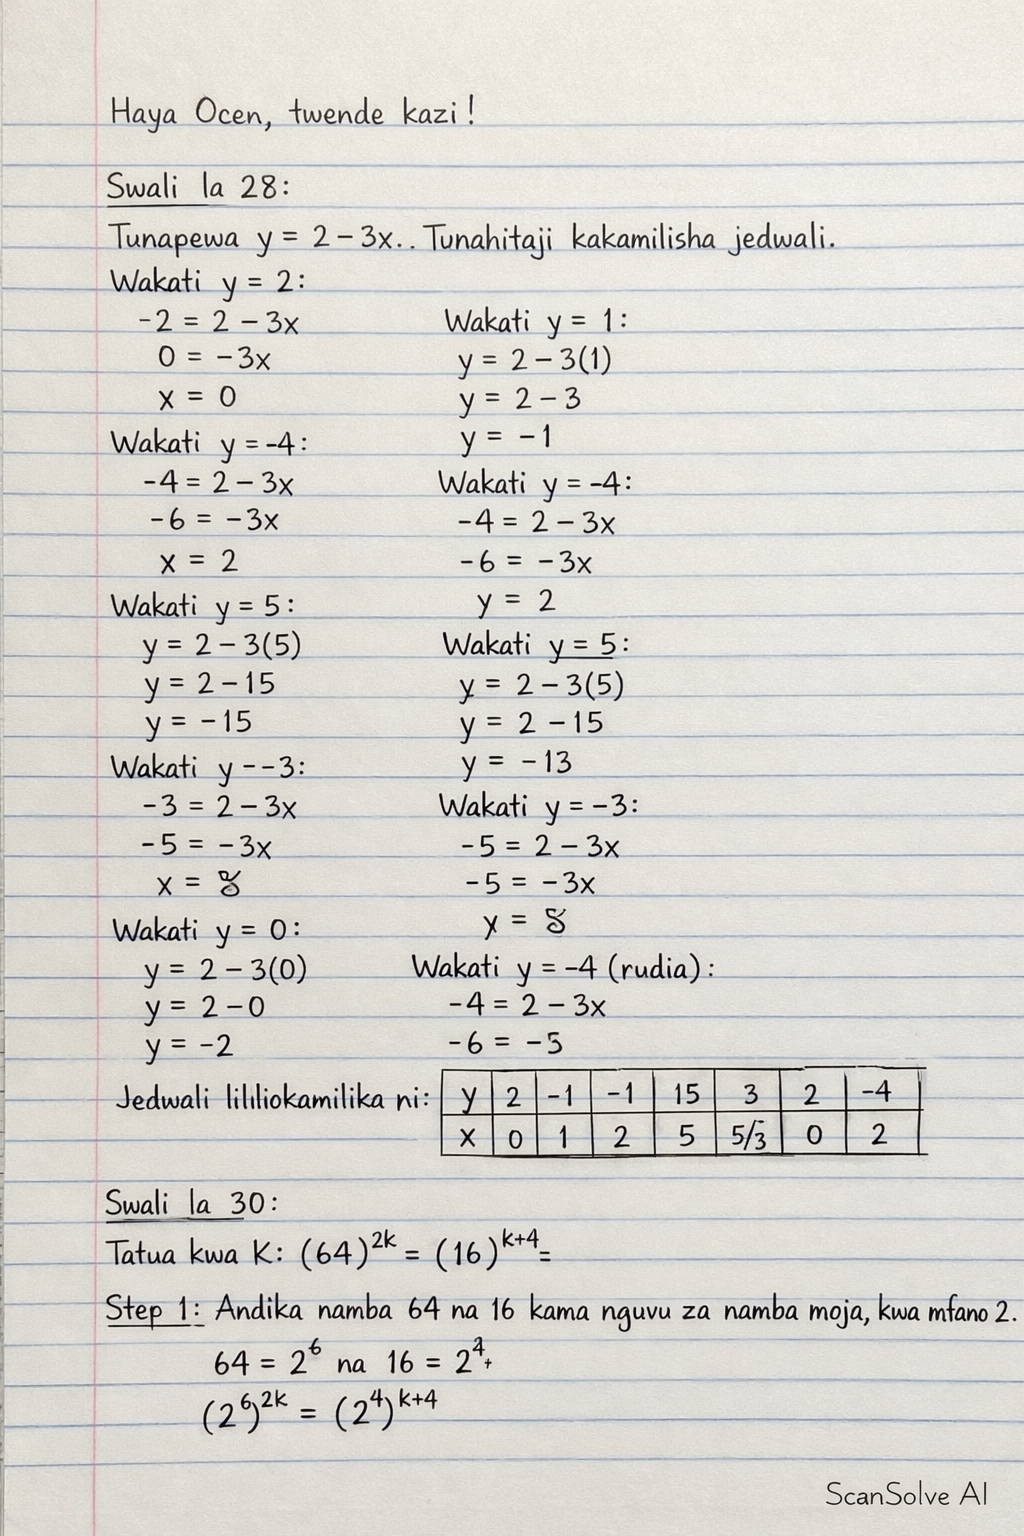 Haya Ocen, twende kazi!
Swali la 28:
Tunapewa y = 2 - 3x.. Tunahitaji kakamilisha jedwali.
Wakati y = 2:
-2 = 2 - 3x
0 = -3x
x = 0
Wakati y = -4:
-4 = 2 - 3x
-6 = -3x
x = 2
Wakati y = 5:
y = 2 - 3(5)
y = 2 - 15
y = -15
Wakati y --3:
-3 = 2 - 3x
-5 = -3x
x =
Wakati y = 0:
y = 2 - 3(0)
y = 2 - 0
y = -2
Wakati y = 1:
y = 2 - 3(1)
y = 2 - 3
y = -1
Wakati y = -4:
-4 = 2 - 3x
-6 = -3x
y = 2
Wakati y = 5:
y = 2 - 3(5)
y = 2 - 15
y = -13
Wakati y = -3:
-5 = 2 - 3x
-5 = -3x
x =
Wakati y = -4 (rudia):
-4 = 2 - 3x
-6 = -5
Jedwali lililiokamilika ni:
y 2 -1 -1 15 3 2 -4
x 0 1 2 5 5/3 0 2
Swali la 30:
Tatua kwa K: (64)^2k = (16)^k+4 =
Step 1: Andika namba 64 na 16 kama nguvu za namba moja, kwa mfano 2.
64 = 2^6 na 16 = 2^4.
(2^6)^2k = (2^4)^k+4
ScanSolve AI